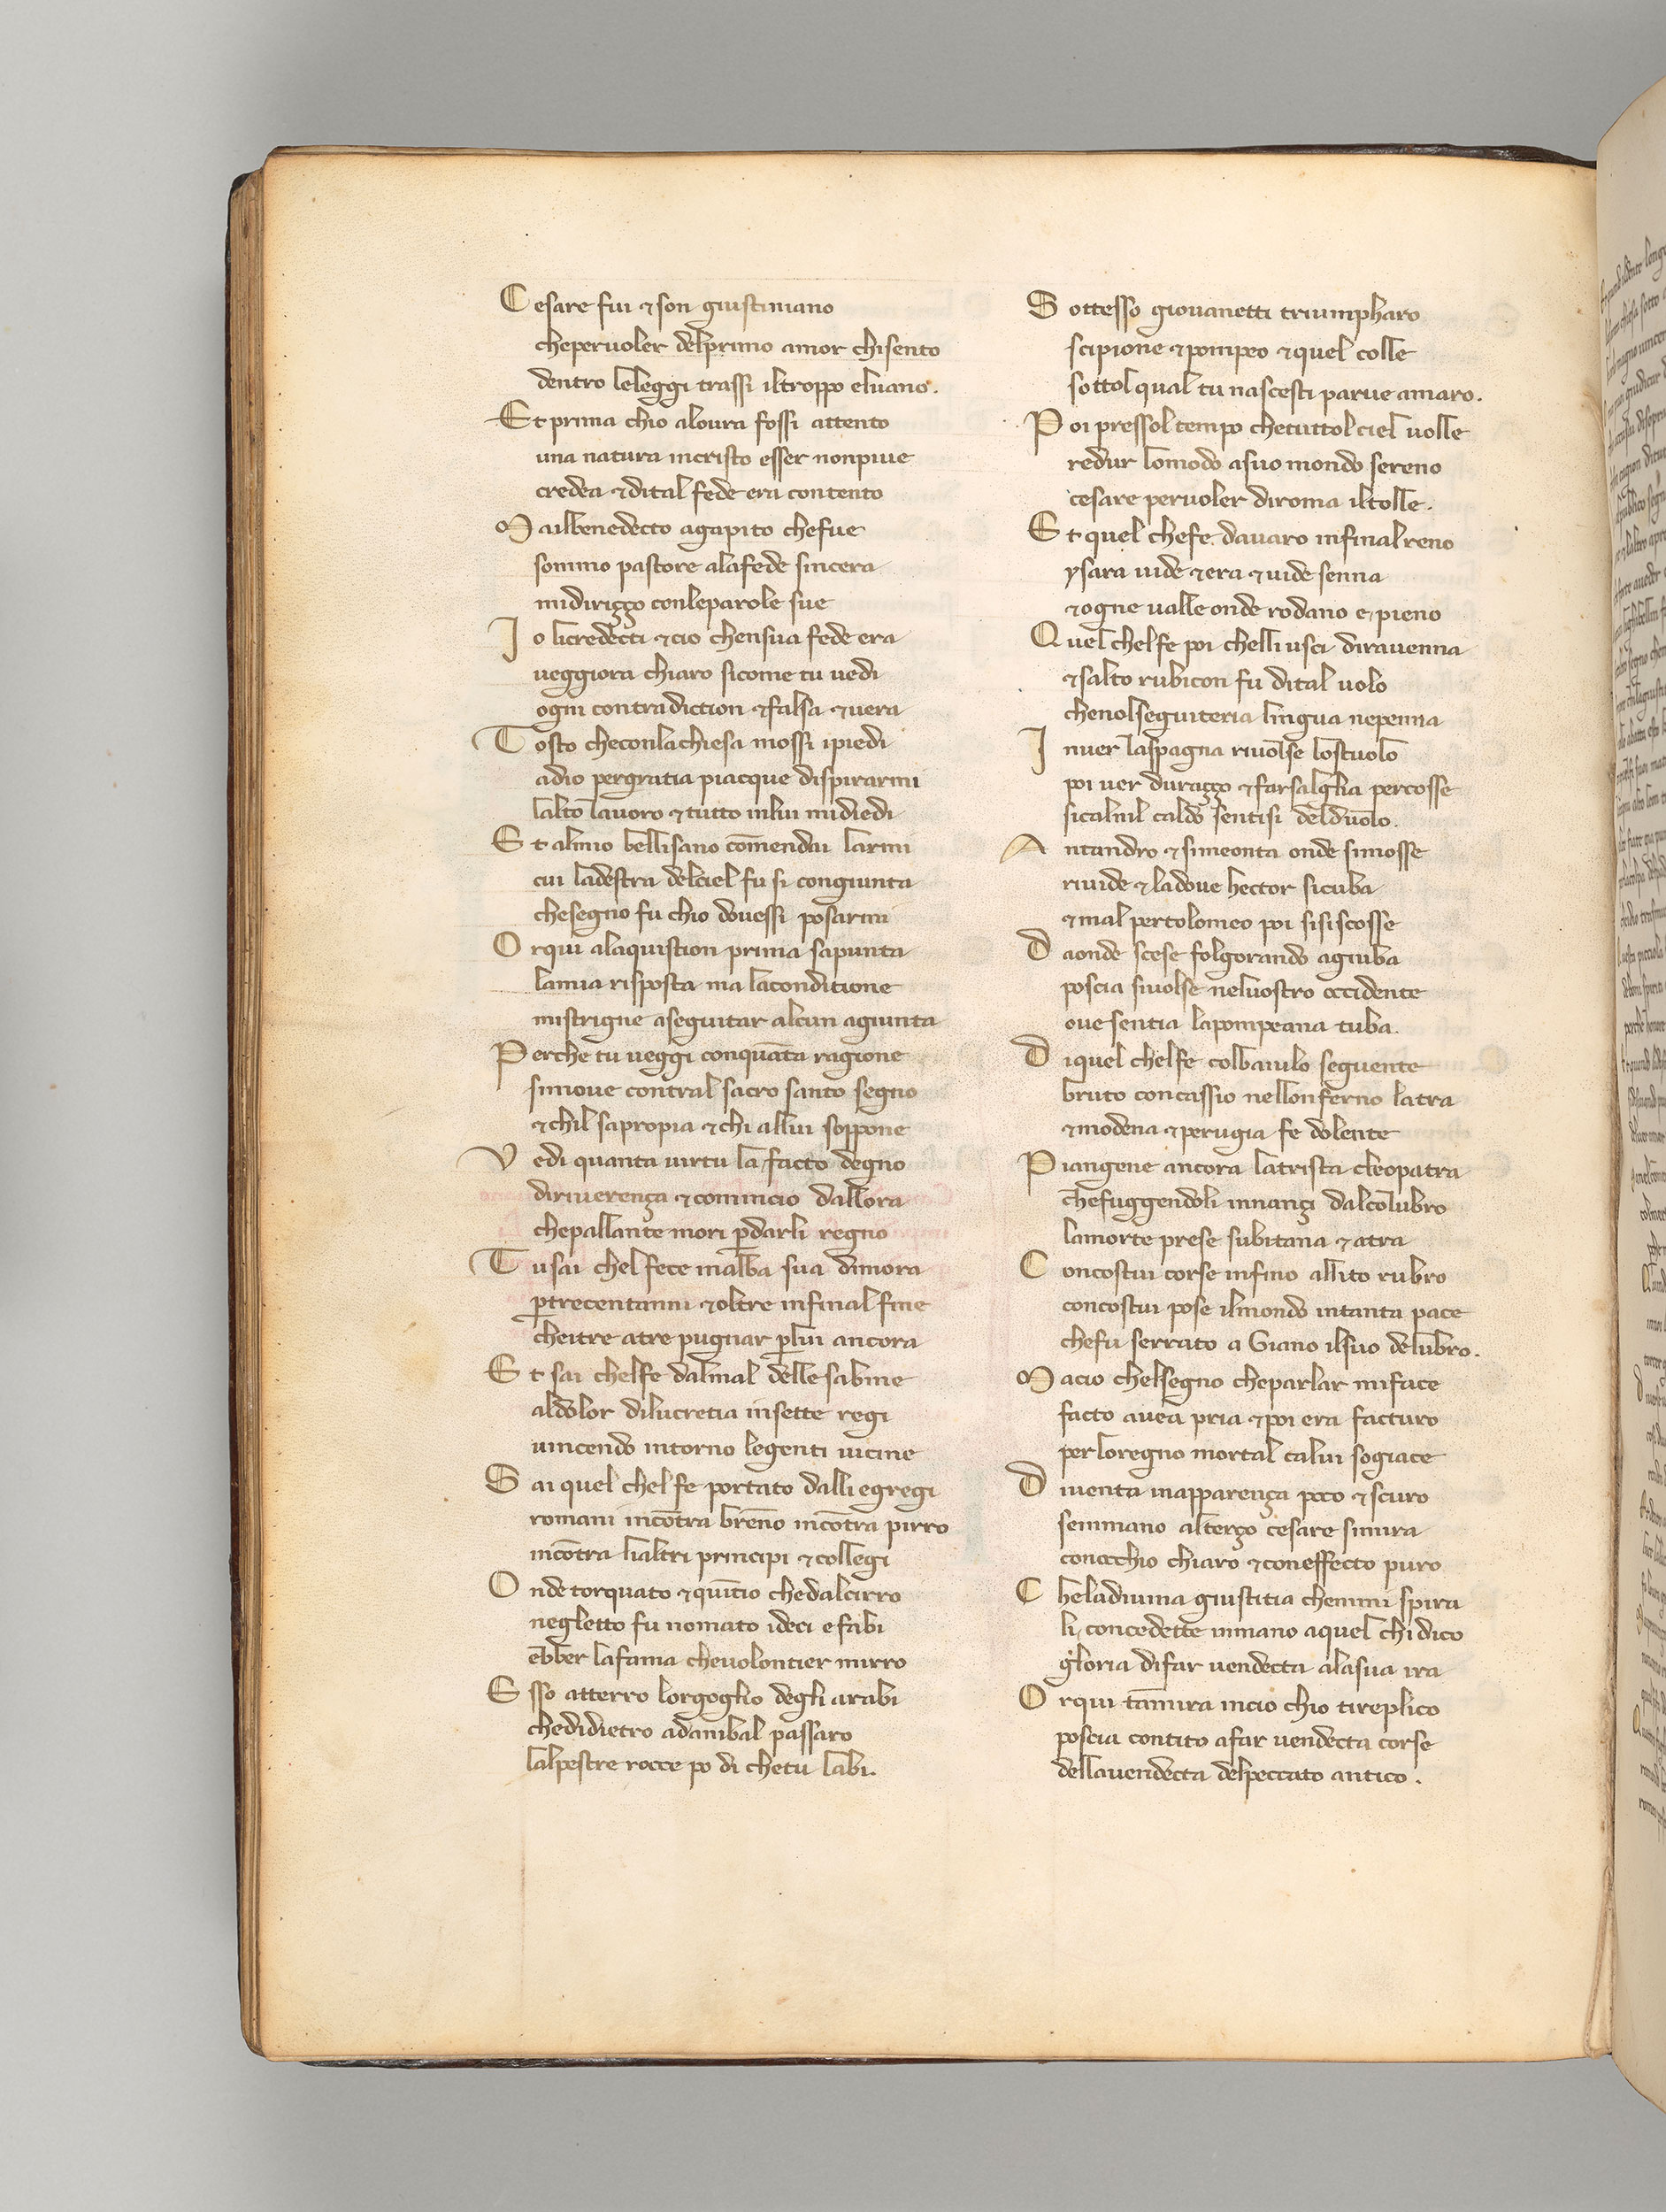 Cesare fui ⁊ son giustiniano
cheperuoler delprimo amor chisento
dentro leleggi trassi iltroppo eluano.
Et prima chio aloura fossi attento
una natura incristo esser nonpiue
credea ⁊ dital fede era contento
Mailbenedecto agapito chefue
sommo pastore alafede sincera
midirigço conleparole sue
Io licredecti ⁊ cio chensua fede era
ueggiora chiaro sicome tu uedi
ogni contradiction ⁊ falsa ⁊ uera
Tosto checonlachiesa mossi ipiedi
adio pergratia piacque dispirarmi
lalto lauoro ⁊ tutto inlui midiedi
Et almio bellisano cōmendai larmi
cui ladestra delciel fu si congiunta
chesegno fu chio douessi posarmi
Orqui alaquistion prima sapunta
lamia risposta ma laconditione
mistrigne aseguitar alcun agiunta
Perche tu ueggi conquāta ragione
simoue contral sacro santo segno
⁊ chil sapropia ⁊ chi allui soppone
Vedi quanta uirtu la facto degno
diriuerença ⁊ comincio dallora
chepallante mori p̄darli regno
Tu sai chel fece inalba sua dimora
p̄trecentanni ⁊ oltre infinal fine
cheitre atre pugnar p̄lui ancora
Et sai chelfe dalmal delle sabine
aldolor dilucretia insette regi
uincendo intorno legenti uicine
Sai quel chel fe portato dalli egregi
romani incōtra brēno incōtra pirro
incōtra lialtri principi ⁊ collegi
Onde torquato ⁊ quītio chedalcirro
negletto fu nomato ideci efabi
ebber lafama cheuolontier mirro
Esso atterro lorgoglio degli arabi
chedidietro adanibal passaro
lalpestre rocce po di chetu labi.
Sottesso giouanetti triumpharo
scipione ⁊ pompeo ⁊ quel colle
sottol qual tu nascesti parue amaro.
Poi pressol tempo chetuttol ciel uolle
redur lomodo asuo mondo sereno
cesare peruoler diroma iltolle.
Et quel chefe dauaro infinalreno
ysara uide ⁊ era ⁊ uide senna
⁊ ogne ualle onde rodano e pieno
Quel chelfe poi chelli usci dirauenna
⁊ salto rubicon fu dital uolo
chenolseguiteria lingua nepenna
Inuer laspagna riuolse lostuolo
poi uer duraçço ⁊ farsalglia percosse
sicalnil caldo sentisi delduolo.
Antandro ⁊ simeonta onde simosse
riuide ⁊ ladoue hector sicuba
⁊ mal pertolomeo poi sisiscosse
Daonde scese folgorando agiuba
poscia siuolse neluostro occidente
oue sentia lapompeana tuba.
Diquel chelfe colbaiulo seguente
bruto concassio nellonferno latra
⁊ modena ⁊ perugia fe dolente
Piangene ancora latrista cleopatra
chefuggendoli innançi dalcolubro
lamorte prese subitana ⁊ atra
Concostui corse infino allito rubro
concostui pose ilmondo intanta pace
chefu serrato a Giano ilsuo delubro.
Macio chelsegno cheparlar miface
facto auea pria ⁊ poi era facturo
perloregno mortal calui sogiace
Diuenta inapparença poco ⁊ scuro
seinmano alterço cesare simira
conocchio chiaro ⁊ coneffecto puro
Cheladiuina giustitia chemmi spira
li concedette inmano aquel chi dico
gloria difar uendecta alasua ira
Orqui tamira incio chio tireplico
poscia contito afar uendecta corse
dellauendecta delpeccato antico.